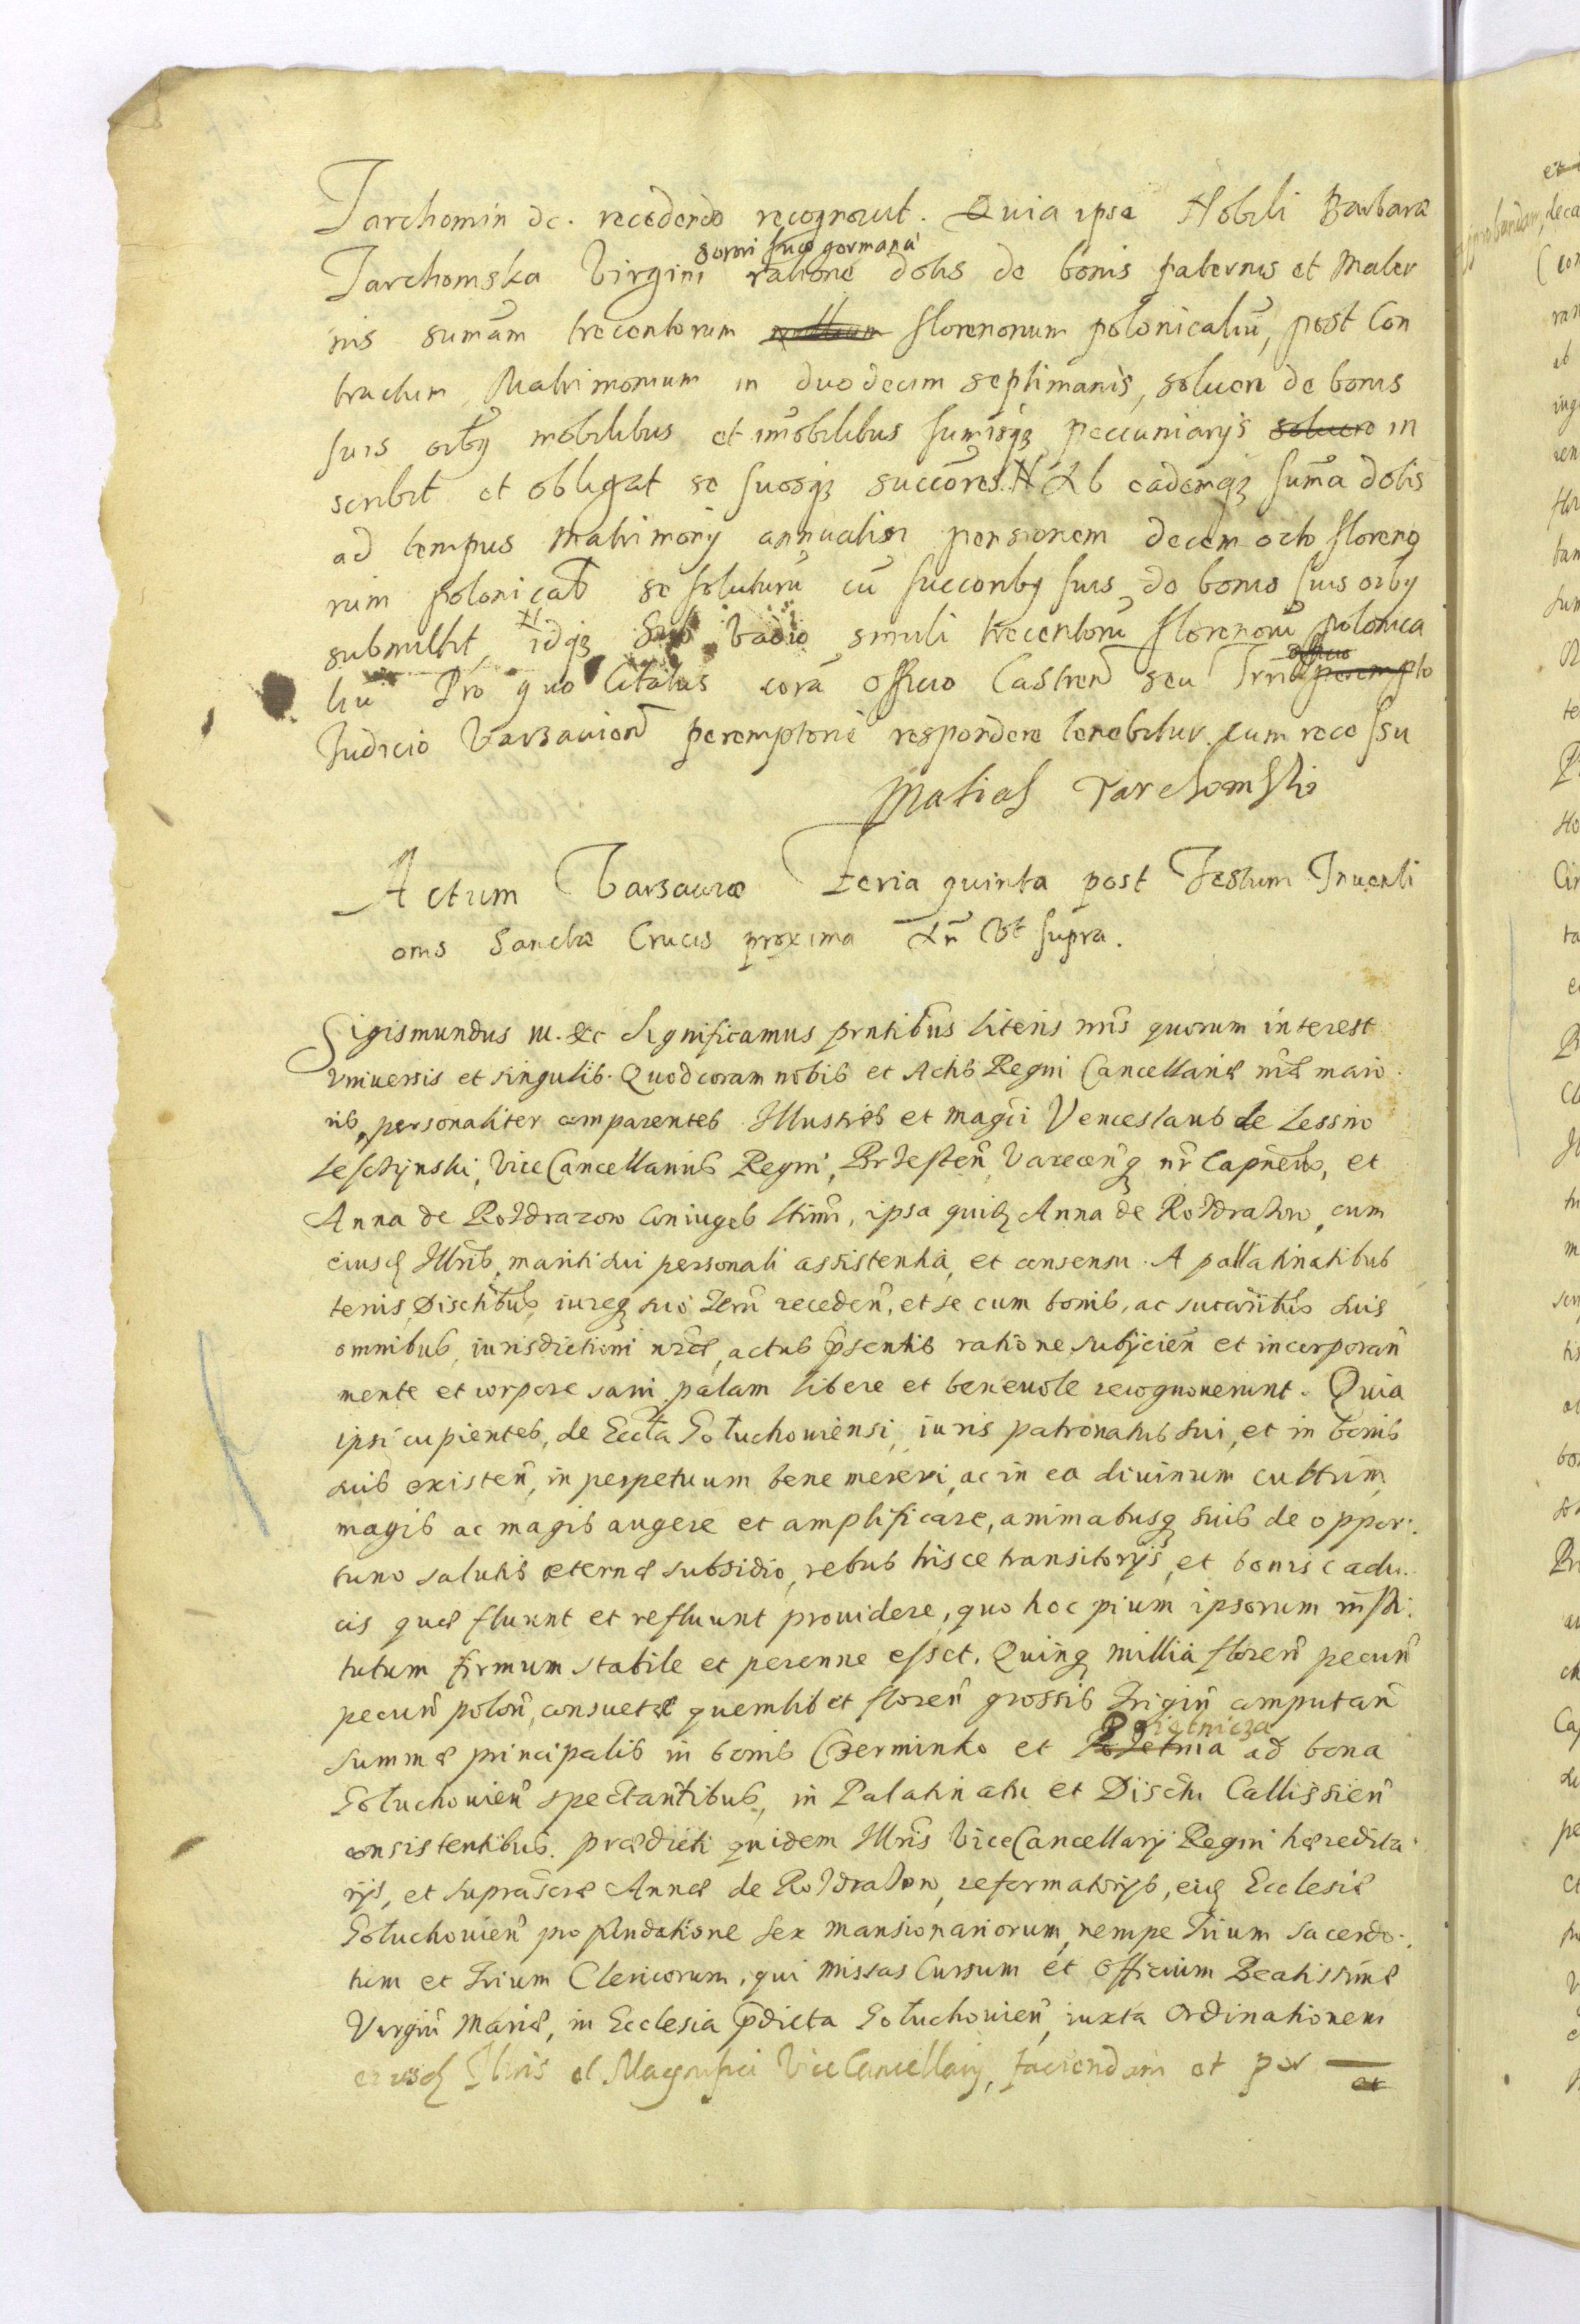 Tarchomin &c. recedendo recognovit. Quia ipse Nobili Barbaræ
sorori suæ germanæ
Tarchomska Virgini ratione dotis de bonis paternis et mater
nis sumām trecentorum florenorum polonicaliū, post con
tractum Matrimonium in duodecim septimanis, soluere de bonis
suis oībꝯ mobilibus et imōbilibus sumīsqꝫ peccuniarijs soluere in
scribit et obligat se suosqꝫ succōres. Ab eademqꝫ sumā dotis
ad tempus Matrimonij annualem pensionem decem octo floreno
rum polonical se soluturū cū succoribꝯ suis de bonis suis oībꝯ
submittit, idqꝫ sub vadio simili trecentorū florenorū polonica
liū Pro quo Citatus corā officio Castren seu Trri
Judicio Varsauien peremptorie respondere tenebitur. cum recessu
Matias Tarchomski
Actum Varsauiæ Feria quinta post Festum Inuenti
onis Sanctæ Crucis proxima An Vt supra.
Sigismundus III. &c Significamus prntibus literis nris quorum interest
vniuersis et singulis. Quod coram nobis et Actis Regni Cancellariæ nræ maio
ris, personaliter comparentes Illustres et magci Venceslaus de Lessno
Lesctzynski, Vice Cancellarius Regni, Brzesten, Varecenqꝫ nr Capneus, et
Anna de Rozdrazow Coniuges ltimi, ipsa quidẽ Anna de Rozdrazow, cum
eiusdẽ Illris, mariti sui personali assistentia, et consensu. A pallatinatibus
terris, Disctibus, iureqꝫ suo Terr receden, et se cum bonis, ac sucãribus suis
omnibus, iurisdictioni nræ, actus p̃sentis ratione, subijcien et incorporan
mente et corpore sani palam libere et beneuole recognouerunt. Quia
ipsi cupientes, de Eccta Gołuchouiensi, iuris patronatus sui, et in bonis
suis existen, in perpetuum bene mereri, ac in ea diuinum cultum
magis ac magis augere et amplificare, animabusqꝫ suis de oppor
tuno salutis æternæ subsidio, rebus hisce transitorijs, et bonis cadu
cis quæ fluunt et refluunt prouidere, quo hoc pium ipsorum insti
tutum firmum stabile et perenne esset. Quinqꝫ millia floren pecun
pecun polon, consuetæ quemlibet floren grossis Trigin computan
Summæ principalis in bonis Czerminko et Pietnicza ad bona
Gołuchouien spectantibus, in Palatinatu et Disctu Callissien
consistentibus. prædicti quidem Illris Vice Cancellarij Regni hæredita
rijs, et suprascræ Annæ de Rozdrazow, reformatorijs, eidẽ Ecclesiæ
Gołuchouien pro fundatione sex mansionariorum, nempe Trium sacerdo
tum et Trium Clericorum, qui missas Cursum et Officium Beatissimæ
Virgin Mariæ, in Ecclesia p̃dicta Gołuchouien, iuxta Ordinationem
eiusdẽ Illris et Magnifici Vice Cancellarij, faciendam et per